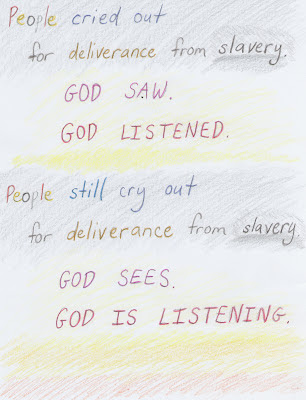 People cried out
for deliverance from slavery.
GOD SAW.
GOD LISTENED.
People still cry out
for deliverance from slavery.
GOD SEES.
GOD IS LISTENING.